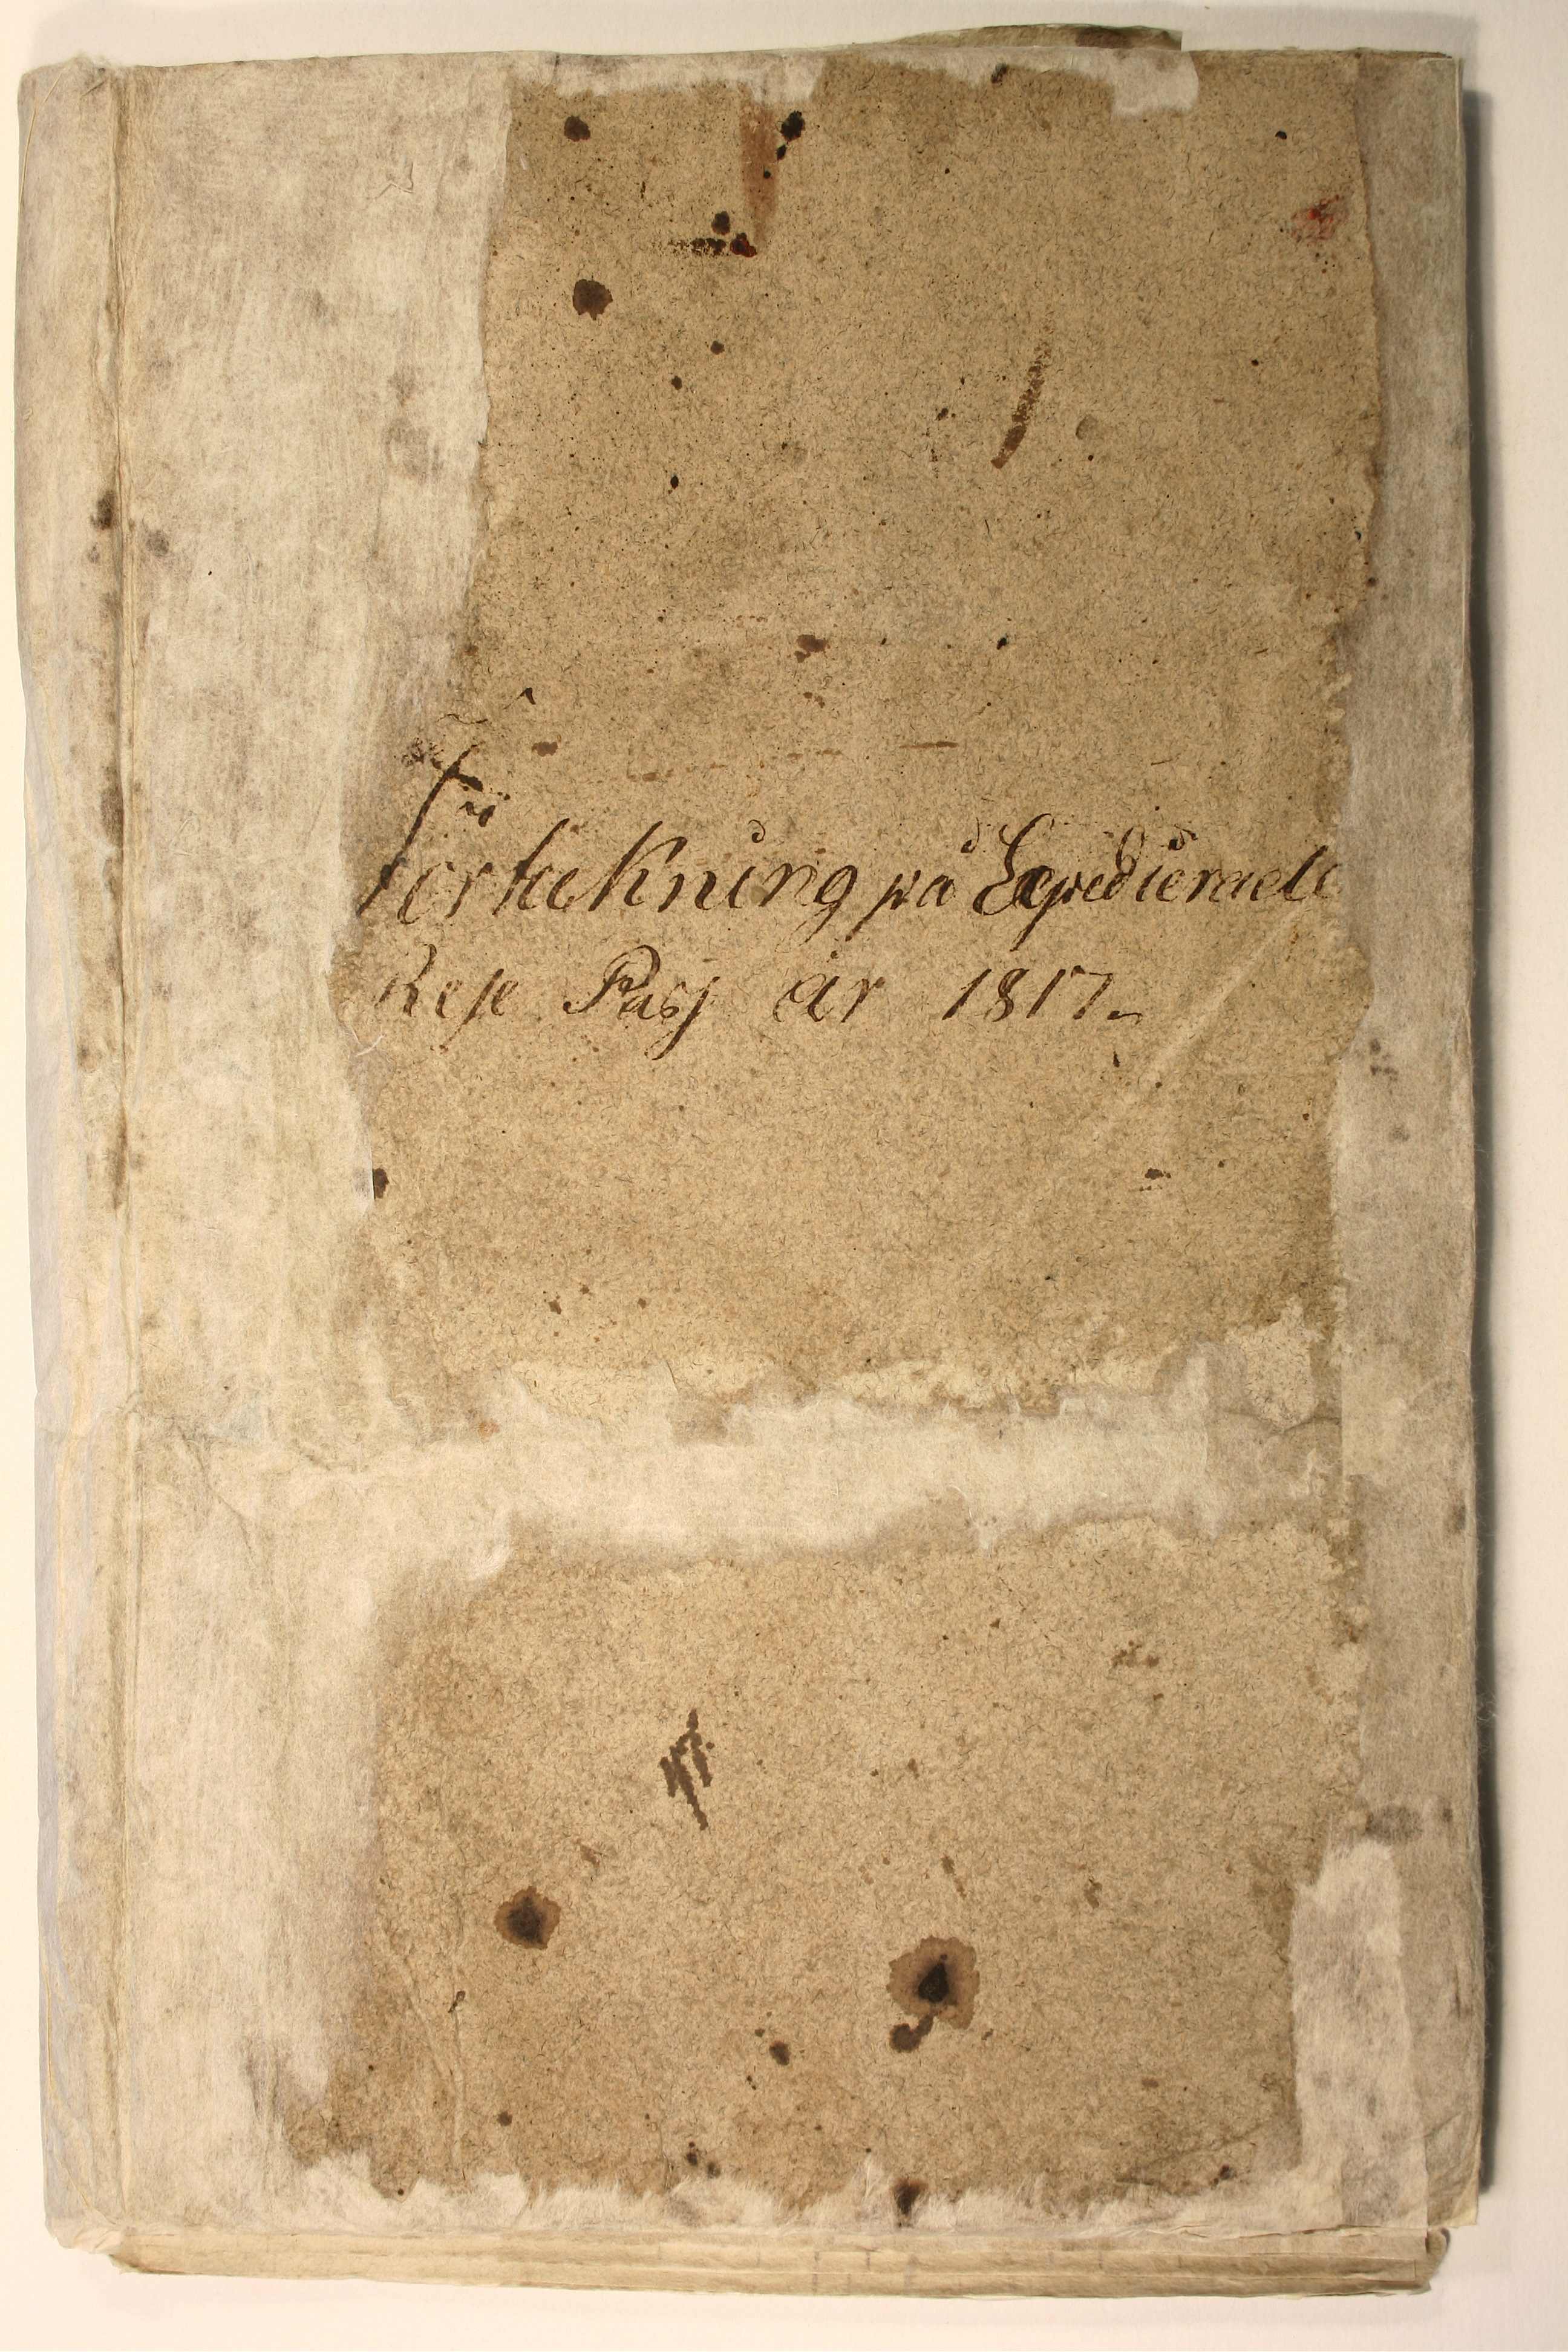 Förtekning på Expedierade
Rese Pass år 1817.